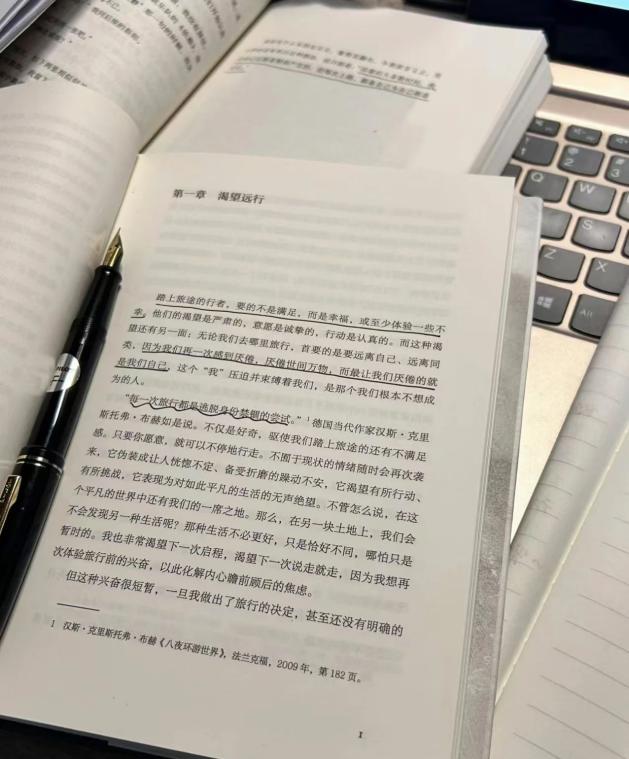 第一章 渴望远行
踏上旅途的行者，要的不是满足，而是幸福，或至少体验一些不
幸。他们的渴望是严肃的，意愿是诚挚的，行动是认真的。而这种渴
望还有另一面：无论我们去哪里旅行，首要的是要远离自己、远离同
类，因为我们再一次感到厌倦，厌倦世间万物，而最让我们厌倦的就
是我们自己，这个“我”压迫并束缚着我们，是那个我们根本不想成
为的人。
“每一次旅行都是逃脱身份禁锢的尝试。”1德国当代作家汉斯·克里
斯托弗·布赫如是说。不仅是好奇，驱使我们踏上旅途的还有不满足
感。只要你愿意，就可以不停地行走。不囿于现状的情绪随时会再次袭
来，它伪装成让人恍惚不定、备受折磨的躁动不安，它渴望有所行动、
有所挑战，它表现为对如此平凡的生活的无声绝望。不管怎么说，在这
个平凡的世界中还有我们的一席之地。那么，在另一块土地上，我们会
不会发现另一种生活呢？那种生活不必更好，只是恰好不同，哪怕只是
暂时的。我也非常渴望下一次启程，渴望下一次说走就走，因为我想再
次体验旅行前的兴奋，以此化解内心瞻前顾后的焦虑。
但这种兴奋很短暂，一旦我做出了旅行的决定，甚至还没有明确的
1 汉斯·克里斯托弗·布赫《八夜环游世界》，法兰克福，2009年，第182页。
1
Q
W
S
Z
X
Alt